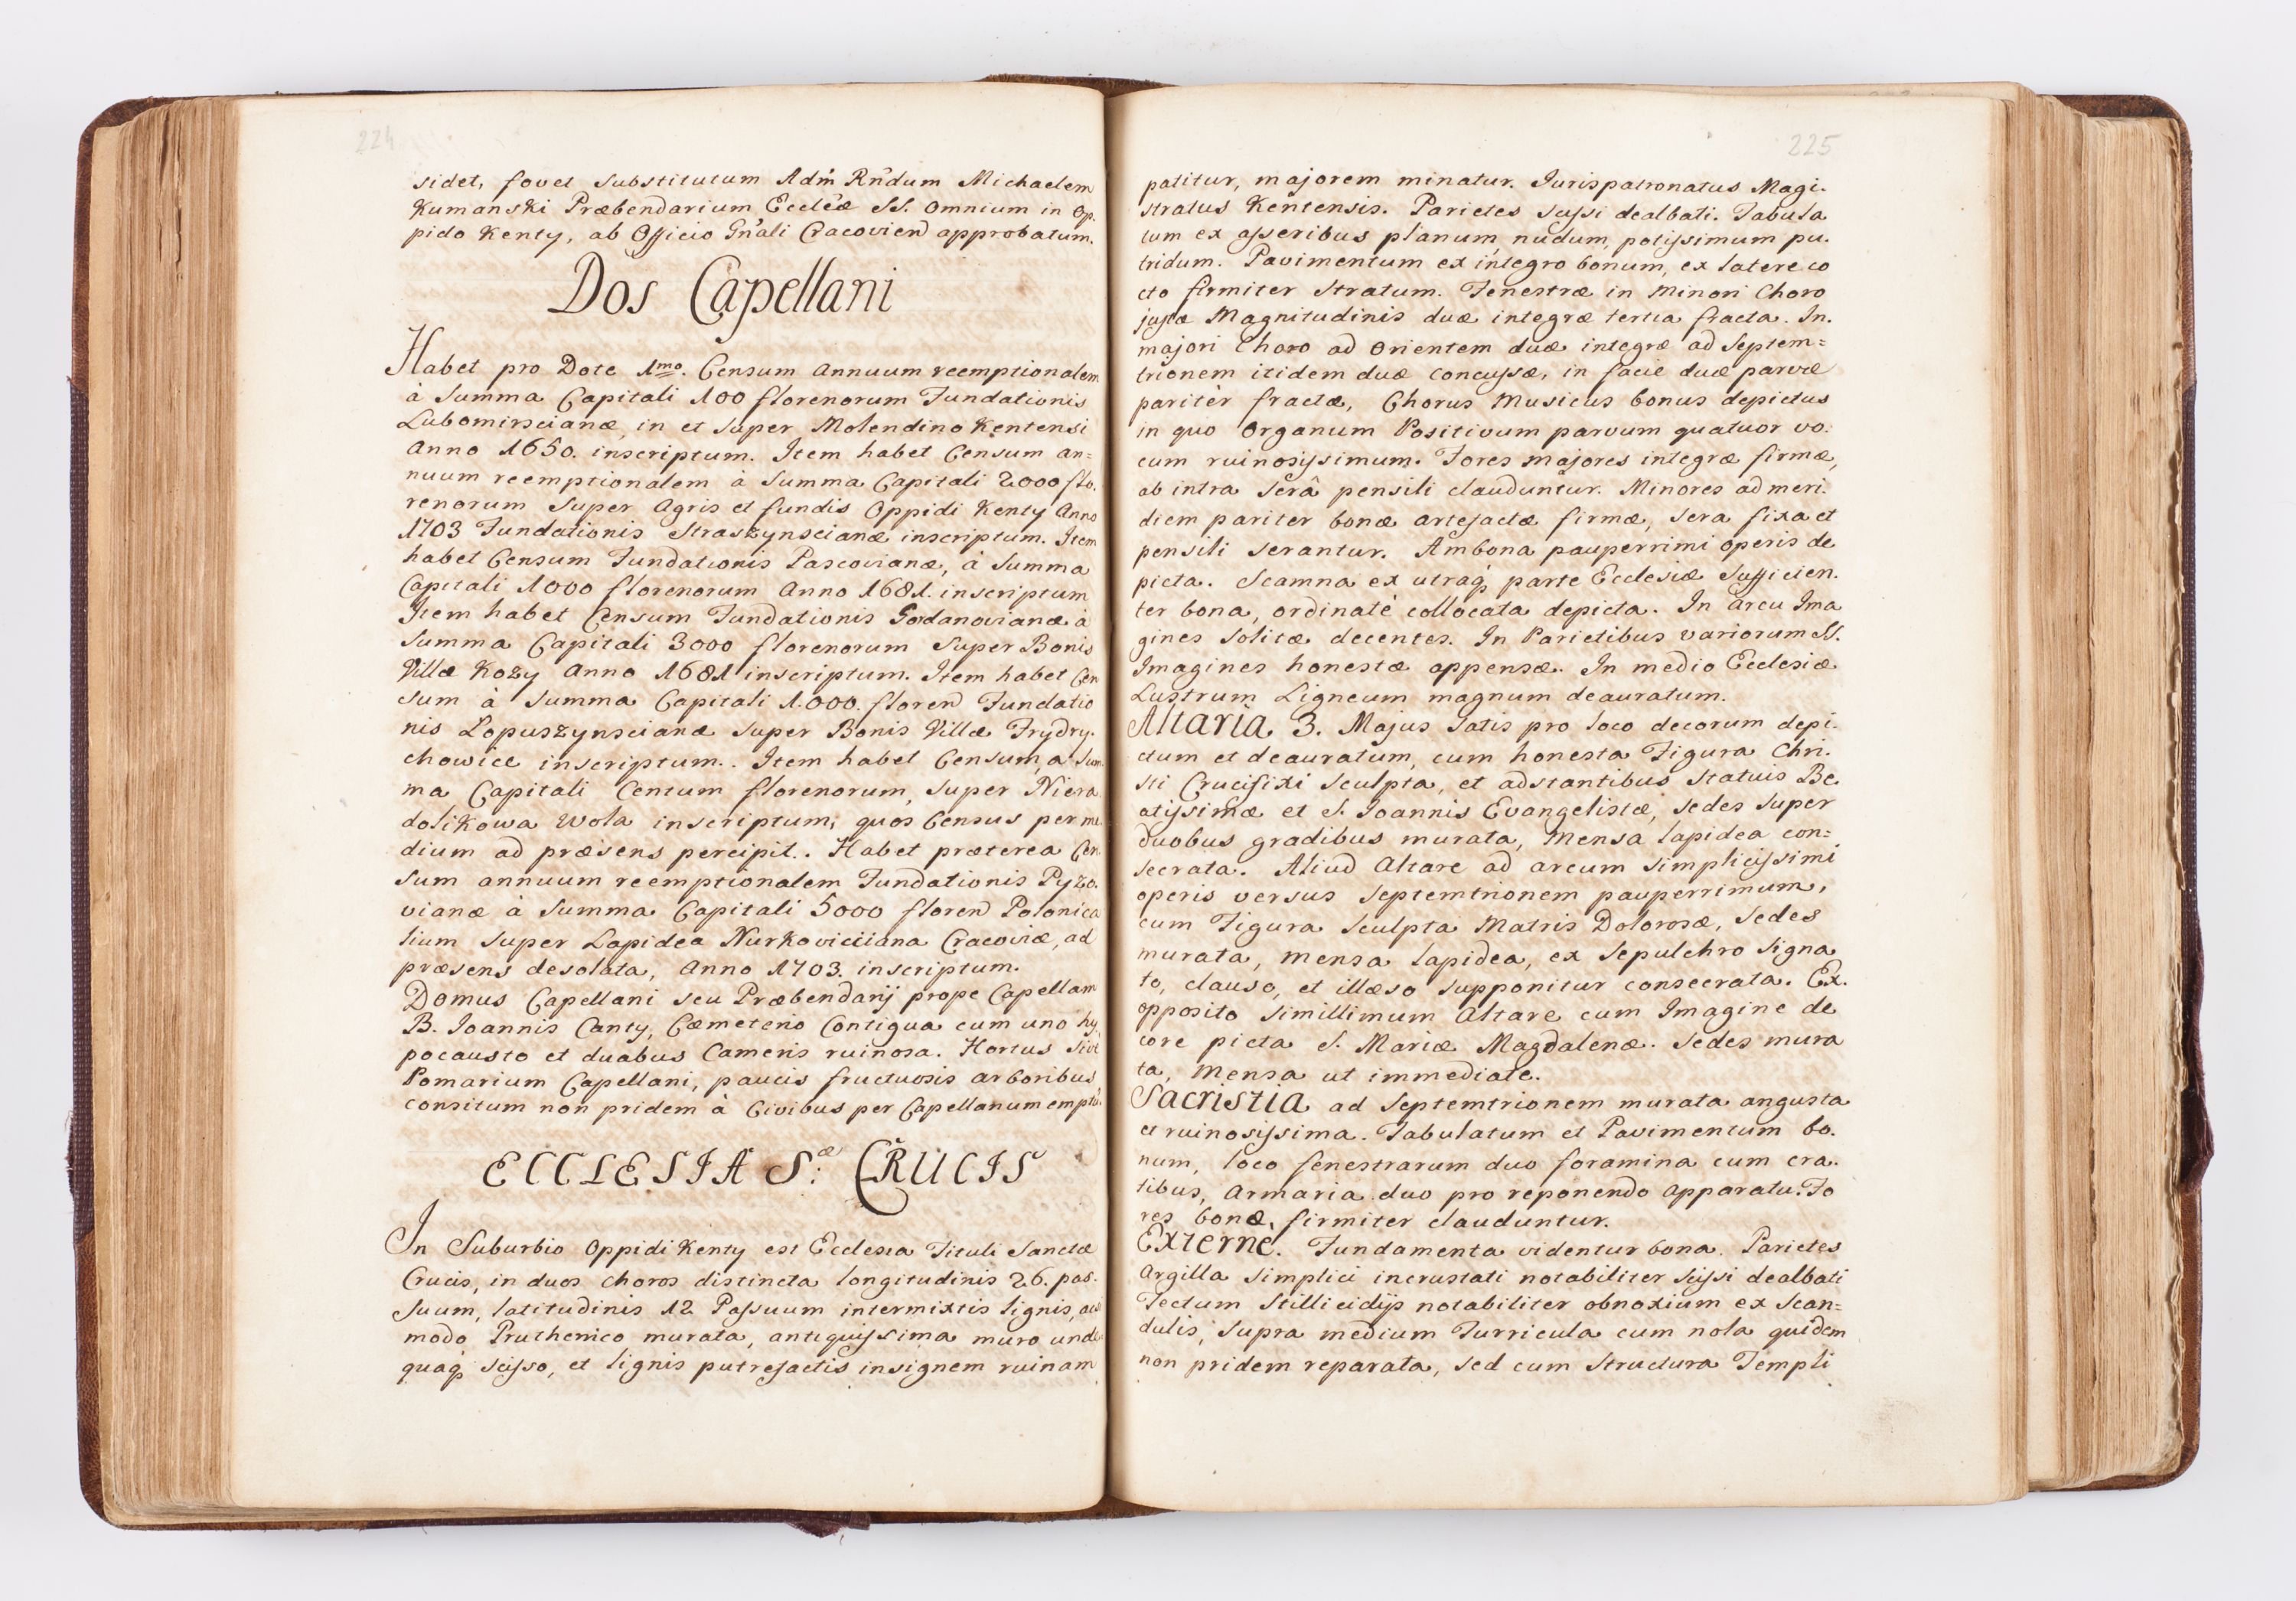 224
sidet, fovet substitutum Adm̃ Rńdum Michaelem
Kumanski Præbendarium Eccleæ SS. Omnium in Op.
pido Kenty, ab Officio Gñali Cracovien approbatum.
Dos Capellani
Habet pro Dote 1mo. Censum Annuum reemptionalem
à Summa Capitali 100 florenorum Fundationis
Lubomirscianæ, in et super Molendino Kentensi
Anno 1650. inscriptum. Item habet Censum an=
nuum reemptionalem à Summa Capitali 2000 flo.
renorum Super Agris et fundis Oppidi Kenty Anno
1703 Fundationis Straszynscianæ inscriptum. Item
habet Censum Fundationis Pascovianæ, à Summa
Capitali 1000 florenorum Anno 1681. inscriptum
Item habet Censum Fundationis Gordanovianæ à
Summa Capitali 3000 florenorum Super Bonis
Villæ Kozy Anno 1681 inscriptum. Item habet Cen
sum à Summa Capitali 1.000. floren Fundatio
nis Lopuszynscianæ super Bonis Villæ Frydry.
chowice inscriptum. Item habet Censum, a Sum
ma Capitali Centum florenorum, super Niera
dolikowa Wola inscriptum, quos Census per me
dium ad præsens percipit. Habet præterea Cen
sum annuum reemptionalem Fundationis Pyzo.
vianæ à Summa Capitali 5000 floren Polonica
lium super Lapidea Nurkoviciiana Cracoviæ, ad
præsens desolata, Anno 1703. inscriptum.
Domus Capellani seu Præbendarij prope Capellam
B. Ioannis Canty, Cæmeterio Contigua cum uno hy
pocausto et duabus Cameris ruinosa. Hortus sive
Pomarium Capellani, paucis fructuosis arboribus
consitum non pridem à Civibus per Capellanum empt
ECCLESIA S:æ CRUCIS
In Suburbio Oppidi Kenty est Ecclesia Tituli Sanctæ
Crucis, in duos choros distincta longitudinis 26. pas.
suum, latitudinis 12 Passuum intermixtis lignis, ac
modo Pruthenico murata, antiquissima muro unde
quaq́ scisso, et lignis putrefactis insignem ruinam
225
patitur, majorem minatur. Jurispatronatus Magi.
stratus Kentensis. Parietes scissi dealbati. Tabula
tum ex asseribus planum, nudum, potissimum pu.
tridum. Pavimentum ex integro bonum, ex latere co
cto firmiter stratum. Fenestræ in Minori Choro
justæ Magnitudinis duæ integræ tertia fracta. In.
majori Choro ad Orientem duæ integræ ad Septem=
trionem itidem duæ concussæ, in facie duæ parvæ
paritèr fractæ, Chorus Musicus bonus depictus
in quo Organum Positivum parvum quatuor vo.
cum ruinosissimum. Fores majores integræ firmæ,
ab intra serâ pensili clauduntur. Minores ad meri.
diem pariter bonæ artefactæ firmæ, sera fixa et
pensili serantur. Ambona pauperrimi operis de
picta. Scamna ex utraq́ parte Ecclesiæ Sufficien.
ter bona, ordinatè collocata depicta. In arcu Ima
gines solitæ decentes. In Parietibus variorum SS.
Imagines honestæ appensæ. In medio Ecclesiæ
Lustrum Ligneum magnum deauratum.
Altaria 3. Majus satis pro loco decorum depi.
ctum et deauratum, cum honesta Figura Chri.
sti Crucifixi sculpta, et adstantibus statuis Be
atissimæ et S. Joannis Evangelistæ, sedes super
duobus gradibus murata, mensa lapidea con=
secrata. Aliud Altare ad arcum simplicissimi
operis versus septemtrionem pauperrimum,
cum Figura sculpta Matris Dolorosæ, Sedes
murata, mensa lapidea, ex sepulchro signa
to, clauso, et illæso supponitur consecrata. Ex.
opposito simillimum Altare cum Imagine de
core picta S. Mariæ Magdalenæ. Sedes mura
ta, mensa ut immediate.
Sacristia ad Septemtrionem murata angusta
et ruinosissima. Tabulatum et Pavimentum bo.
num, loco fenestrarum duo foramina cum cra.
tibus, Armaria duo pro reponendo Apparatu. Fo
res bonæ, firmiter clauduntur.
Externe. Fundamenta videntur bona. Parietes
Argilla simplici incrustati notabiliter scissi dealbati
Tectum stillicidijs notabiliter obnoxium ex scan=
dulis, supra medium Turricula cum nola quidem
non pridem reparata, sed cum structura Templi